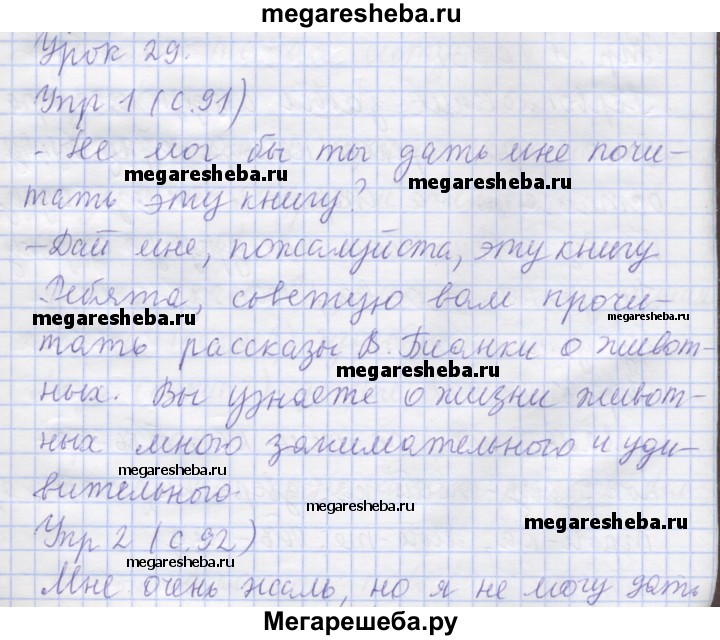 megaresheba.ru
Урок 29.
Упр 1 (с.91)
- Не мог бы ты дать мне почи-
megaresheba.ru megaresheba.ru
тать эту книгу?
- Дай мне, пожалуйста, эту книгу
Ребята, советую вам прочи-
megaresheba.ru megaresheba.ru
тать рассказы В. Бианки о живот-
megaresheba.ru
ных. Вы узнаете о жизни живот-
ных много занимательного и уди-
megaresheba.ru
вительного.
megaresheba.ru megaresheba.ru
Упр 2 (с.92)
megaresheba.ru
Мне очень жаль, но я не могу дать
Мегарешеба.ру